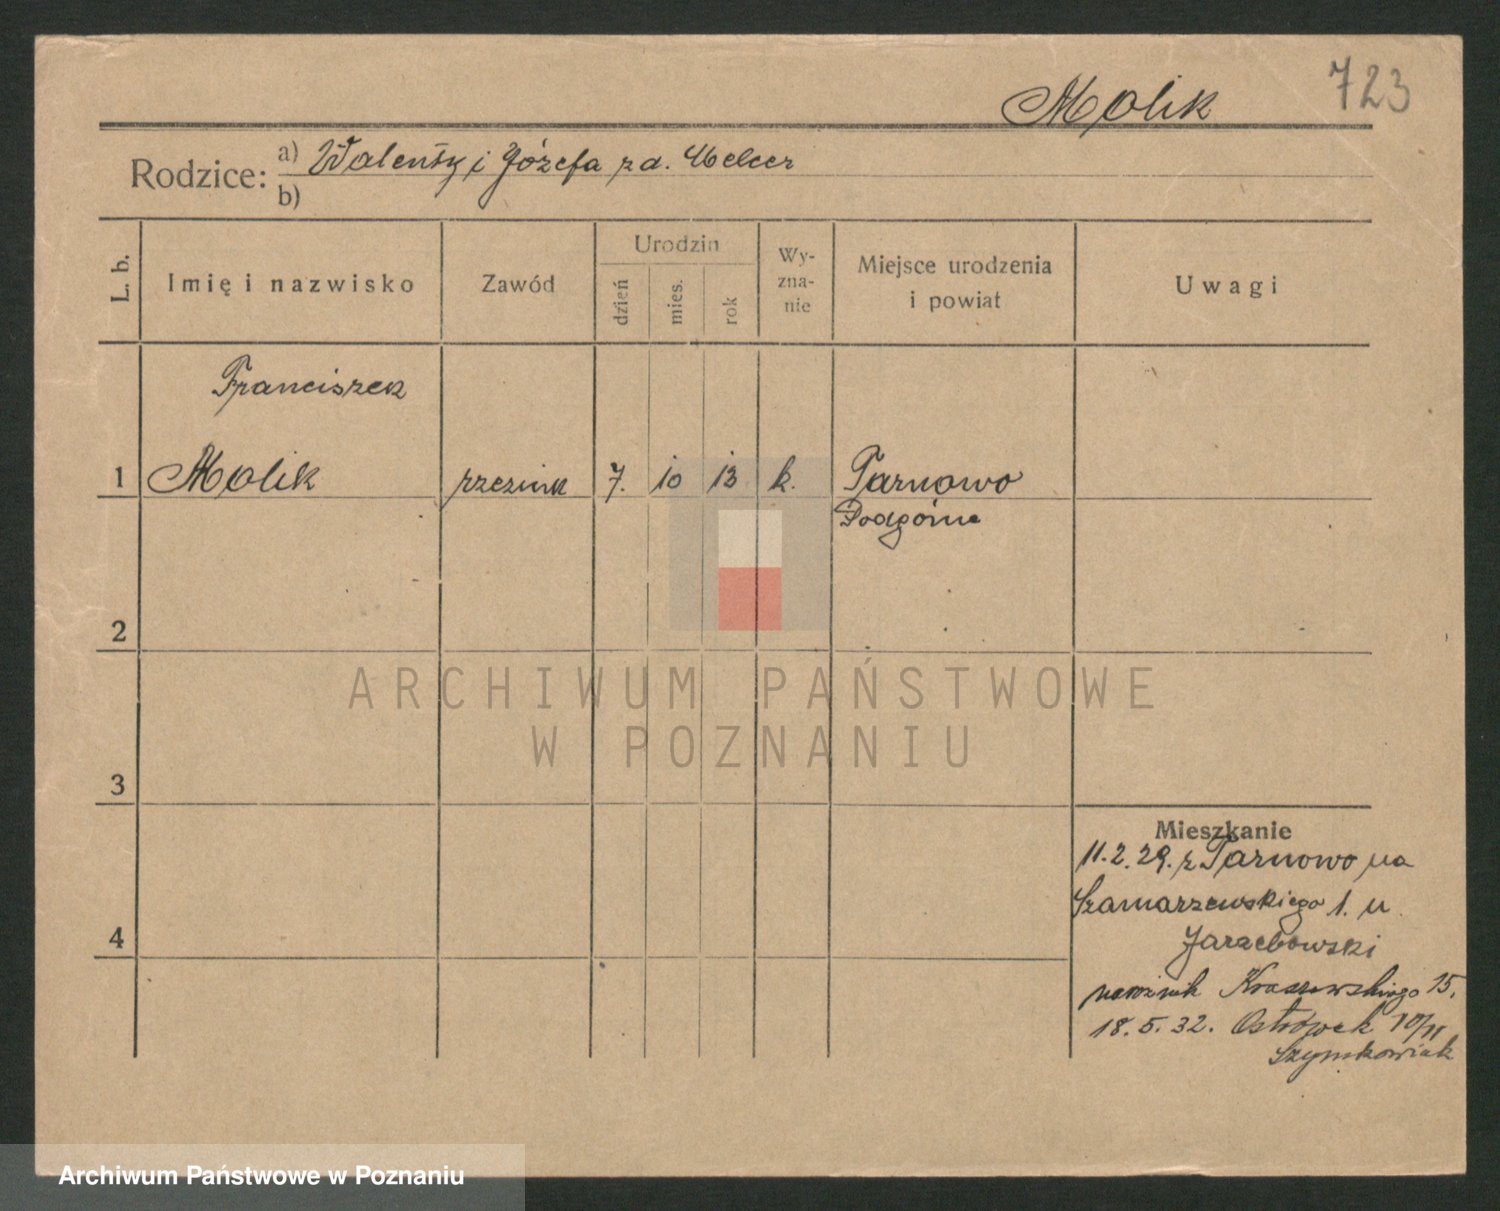 723
Molik
Rodzice: a) Walenty i Józefa zd. Melcer
b)
L. b. Imię i nazwisko Zawód Urodzin dzień mies. rok Wy-zna-nie Miejsce urodzenia i powiat Uwagi
Franciszek
1 Molik rzeźnik 7. 10 13 k. Tarnowo
Podgórne
2
3
4
Mieszkanie
11.2.29. z Tarnowo na
Szamarzewskiego 1. u
Jarzebowski
narożnik Kraszewskiego 15.
18.5.32. Ostrówek 10/11
Szymkowiak
ARCHIWUM PAŃSTWOWE
W POZNANIU
Archiwum Państwowe w Poznaniu